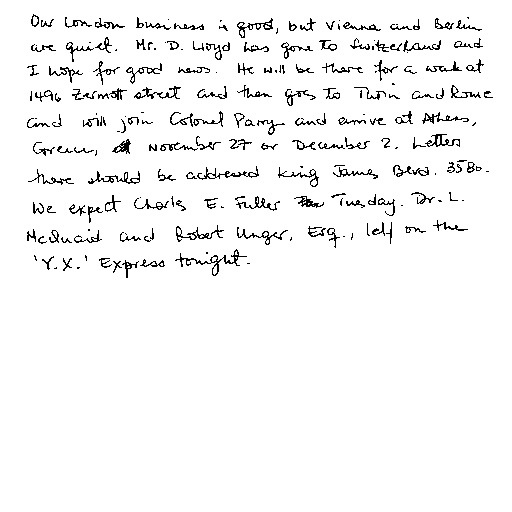 Our London business is good, but Vienna and Berlin
are quiet. Mr. D. Lloyd has gone to Switzerland and
I hope for good news. He will be there for a week at
1496 Zermott street and then goes to Turin and Rome
and will join Colonel Parry and arrive at Athens,
Greece, November 27 or December 2. Letters
there should be addressed King James Blvd. 3580.
We expect Charles E. Fuller Tuesday. Dr. L.
McQuaid and Robert Unger, Esq., left on the
'Y.X.' Express tonight.